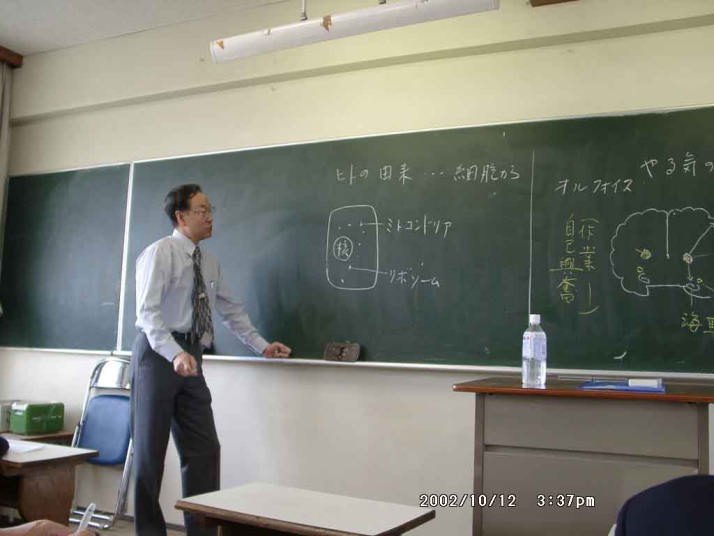 ヒトの由来…細胞から
ミトコンドリア
核
リボソーム
オルフォイス
やる気の
（作業）
自己興奮
海馬
2002/10/12 3:37pm